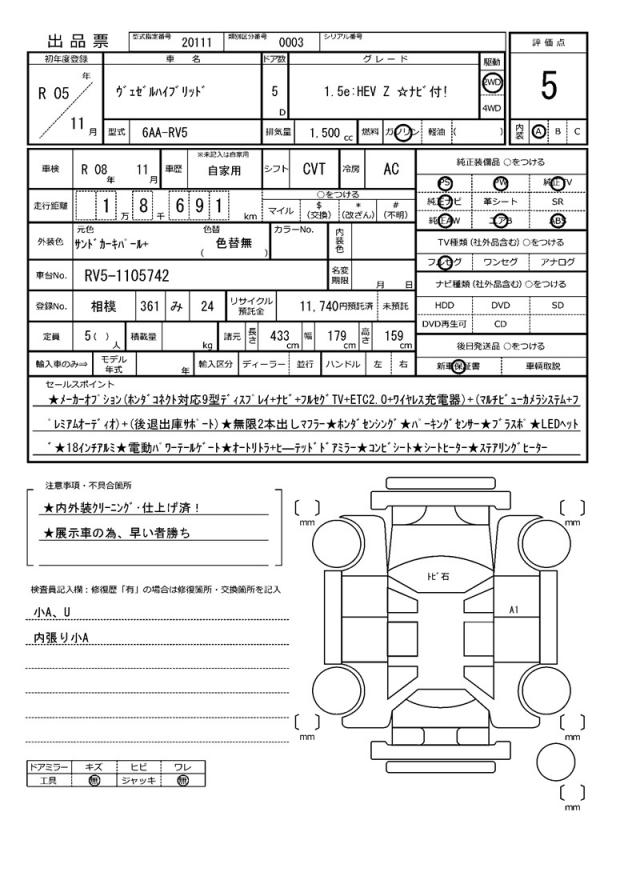 出品票 型式指定番号 20111 類別区分番号 0003 シリアル番号
評価点
5
内装 A B C
初年度登録 車名 ドア数 グレード 駆動
R 05 年 11 月
ヴェゼルハイブリッド 5 D 1.5e:HEV Z ☆ナビ付! 2WD 4WD
型式 6AA-RV5 排気量 1.500 cc 燃料 ガソリン 軽油 ( )
車検 R 08 年 11 月 車歴 ※未記入は自家用 自家用 シフト CVT 冷房 AC
走行距離 1 万 8 千 6 9 1 km ○をつける マイル $ (交換) * (改ざん) # (不明)
外装色 元色 サンドカーキパール+ 色替 ( 色替無 ) カラーNo. 内装色
車台No. RV5-1105742 名変期限 月 日
登録No. 相模 361 み 24 リサイクル預託金 11,740円預託済 未預託
定員 5( ) 人 積載量 kg 諸元 長さ 433 cm 幅 179 cm 高さ 159 cm
輸入車のみ⇒ モデル年式 年 輸入区分 ディーラー 並行 ハンドル 左 右
純正装備品 ○をつける
PS PW 純正TV
純正ナビ 革シート SR
純正AW エアB ABS
TV種類(社外品含む)○をつける
フルセグ ワンセグ アナログ
ナビ種類(社外品含む)○をつける
HDD DVD SD
DVD再生可 CD
後日発送品 ○をつける
新車保証書 車輌取説
セールスポイント
★メーカーオプション(ホンダコネクト対応9型ディスプレイ+ナビ+フルセグTV+ETC2.0+ワイヤレス充電器)+(マルチビューカメラシステム+プ
レミアムオーディオ)+(後退出庫サポート)★無限2本出しマフラー★ホンダセンシング★パーキングセンサー★プラスポ★LEDヘット
゙★18インチアルミ★電動パワーテールゲート★オートリトラ+ヒーテッドドアミラー★コンビシート★シートヒーター★ステアリングヒーター
注意事項・不具合箇所
★内外装クリーニング・仕上げ済!
★展示車の為、早い者勝ち
検査員記入欄:修復歴「有」の場合は修復箇所・交換箇所を記入
小A、U
内張り小A
ドアミラー キズ ヒビ ワレ
工具 無 ジャッキ 無
mm
mm
トビ石
A1
mm
mm
mm